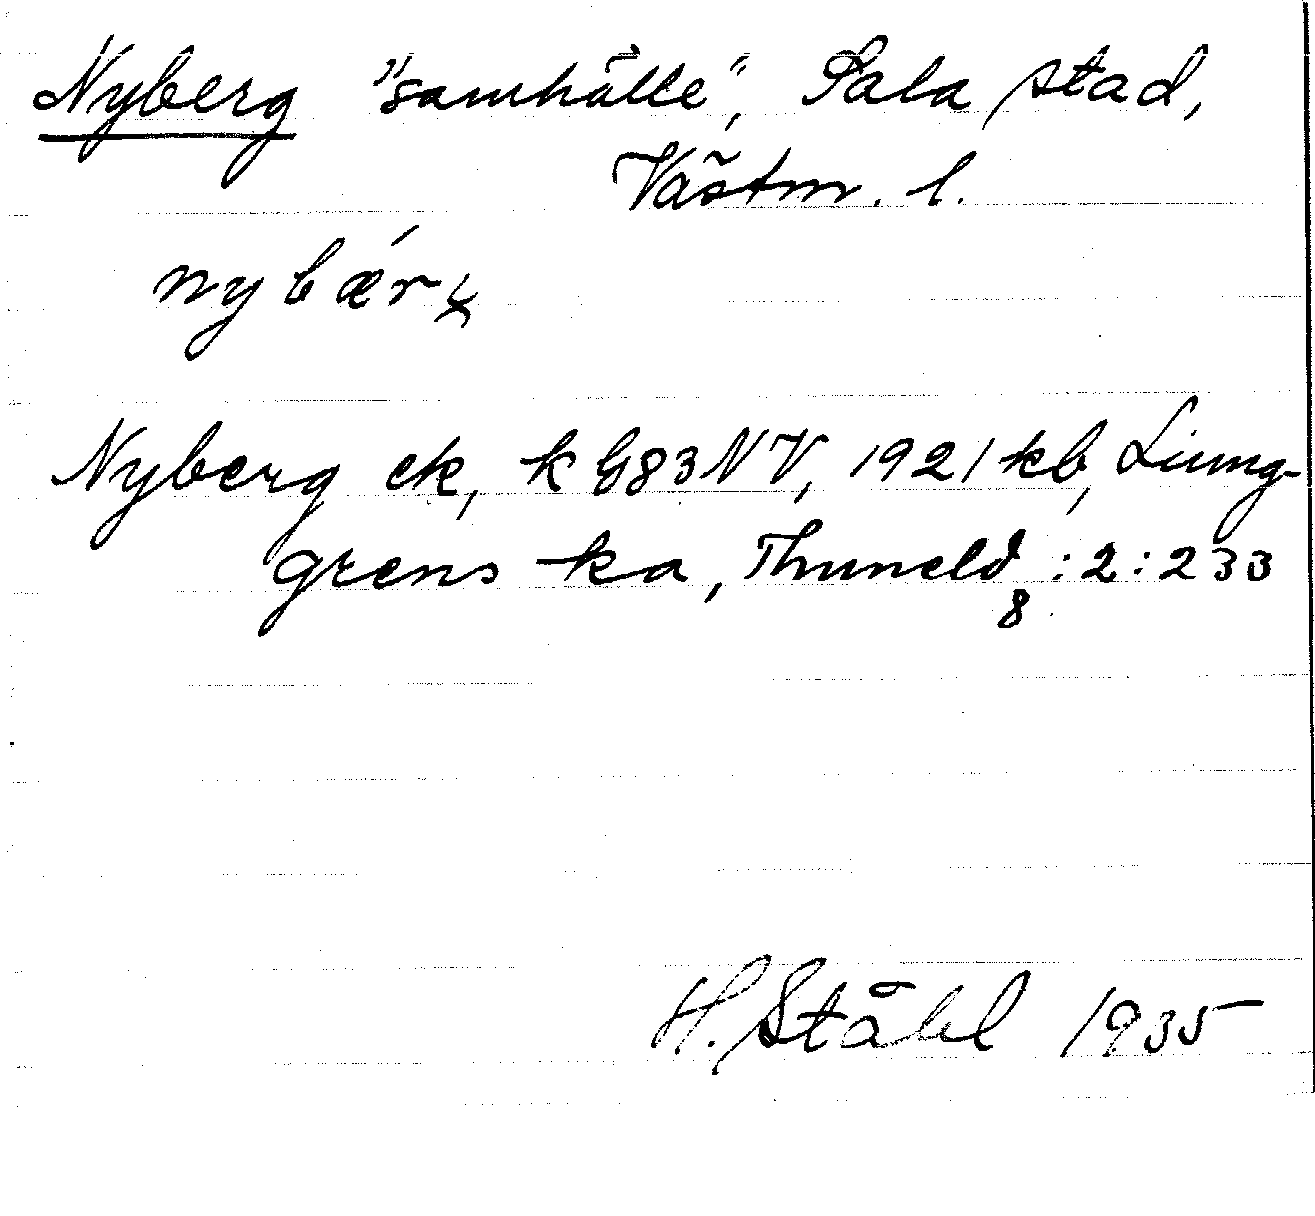 Nyberg "samhälle", Sala stad,
Västm. l.
nybǽrɣ
Nyberg ek, k G83NV, 1921 kb, Ljung-
grens ka, Thuneld : 2 : 233
8
H. Ståhl 1935